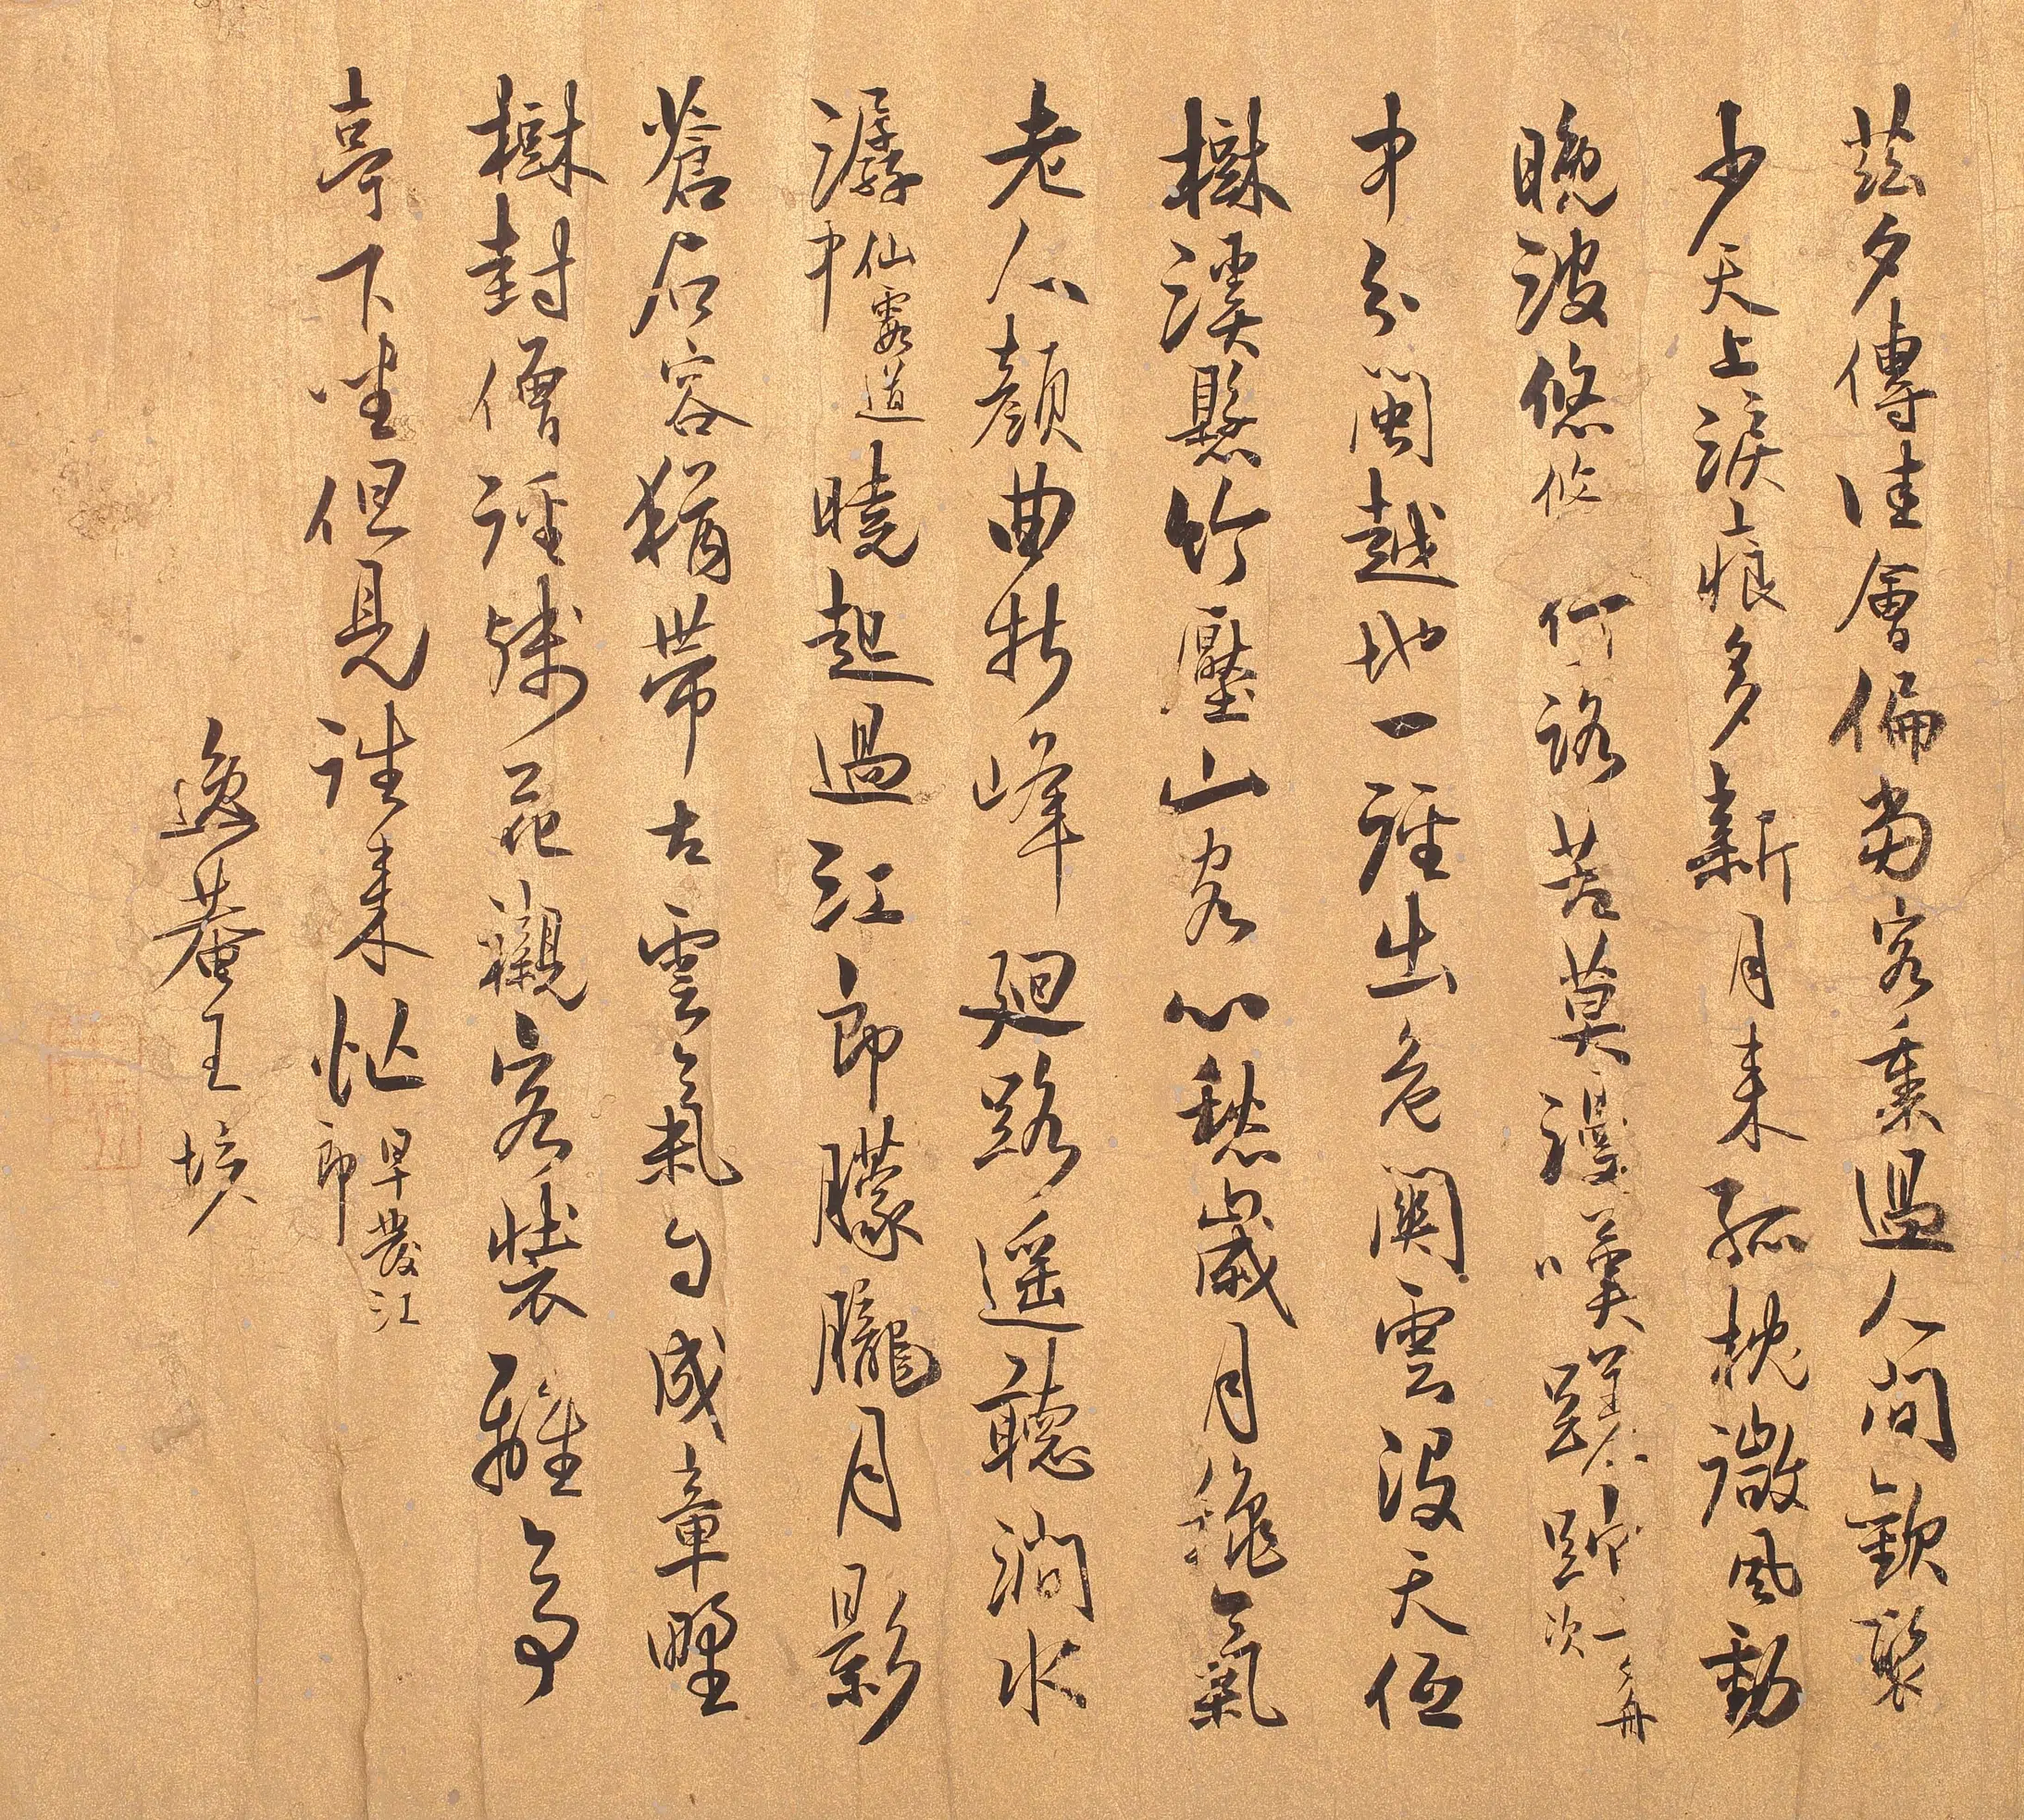 茲夕傳佳會偏當客裏過人間歡聚
少天上淚痕多新月來孤枕微風動
晚波悠悠何路苦莫漫嘆蹉跎七夕舟次
中分閩越地一徑出危關雲沒天低
樹溪懸竹壓山客心愁歲月穐氣
老人顏曲折峰廻路遙聽澗水
潺仙霞道中曉起過江郎朦朧月影
蒼石容猶帶古雲氣自成章野
樹封僧徑殘花襯客裝離亭
亭下坐但見往來忙早發江郎
逸菴王垓